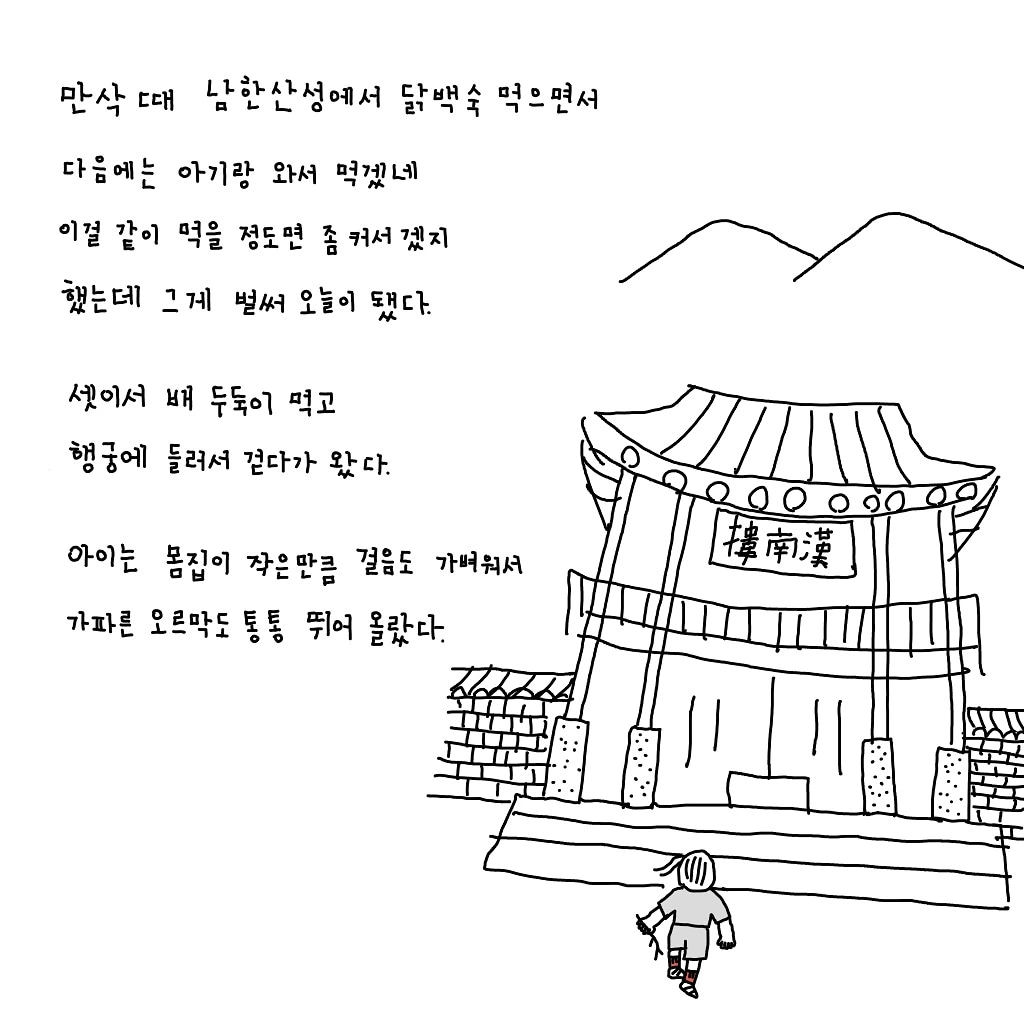 만삭 때 남한산성에서 닭백숙 먹으면서
다음에는 아기랑 와서 먹겠네
이걸 같이 먹을 정도면 좀 커서겠지
했는데 그게 벌써 오늘이 됐다.
셋이서 배 두둑이 먹고
행궁에 들러서 걷다가 왔다.
아이는 몸집이 작은만큼 걸음도 가벼워서
가파른 오르막도 통통 뛰어 올랐다.
樓南漢